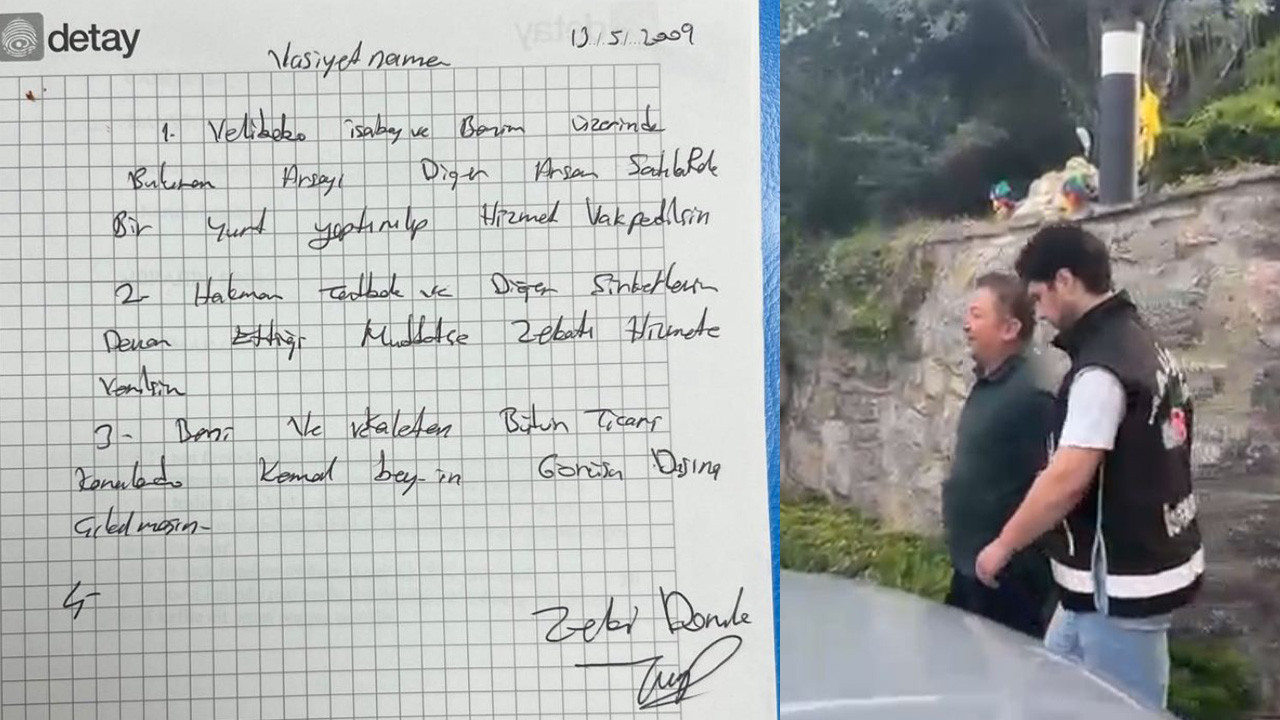 detay
13/5/2009
Vasiyetname
1- Velibaba isabey ve Benim üzerinde
Bulunan Arsayı Diğer Arsam Satılıp
Bir yurt yaptırılıp Hizmet Vakpedilsin
2- Hakman ve Diğer Şirketlerin
Devam Ettiği Müddetçe Zekatı Hizmete
Verilsin
3- Beni Ve Vekaleten Bütün Ticari
Konularda Kemal bey-in Görüşü Dışına
Çıkılmasın-
4-
Zeki